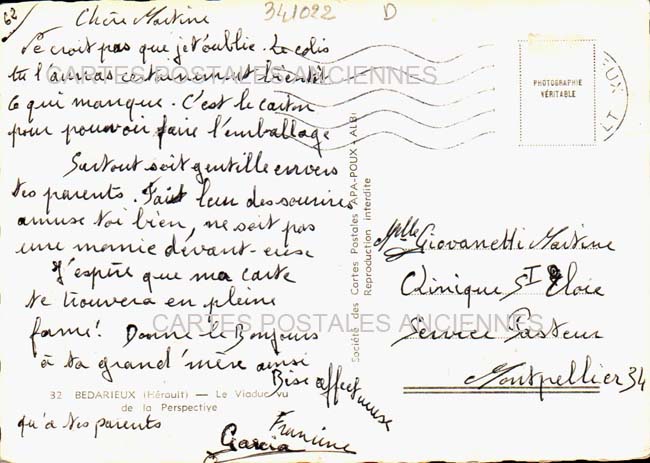 62
341022
D
Chère Martine
Ne croit pas que je t'oublie. Le colis
tu l'auras certainement bientôt
Ce qui manque. C'est le carton
pour pouvoir faire l'emballage
Surtout soit gentille envers
tes parents. Fait leur des sourires
amuse toi bien, ne soit pas
une mamie devant
J'espère que ma carte
te trouvera en pleine
forme! Donne le Bonjours
à ta grand'mère ainsi
qu'à tes parents
Bise affectueuse
Francine
Garcia
32 BEDARIEUX (Hérault) — Le Viaduc vu
de la Perspective
Société des Cartes Postales APA-POUX - ALBI
Reproduction interdite
PHOTOGRAPHIE
VÉRITABLE
EUX
LT
Mlle Giovanetti Martine
Clinique St Eloie
Service Pasteur
Montpellier 34
CARTES POSTALES ANCIENNES
CARTES POSTALES ANCIENNES